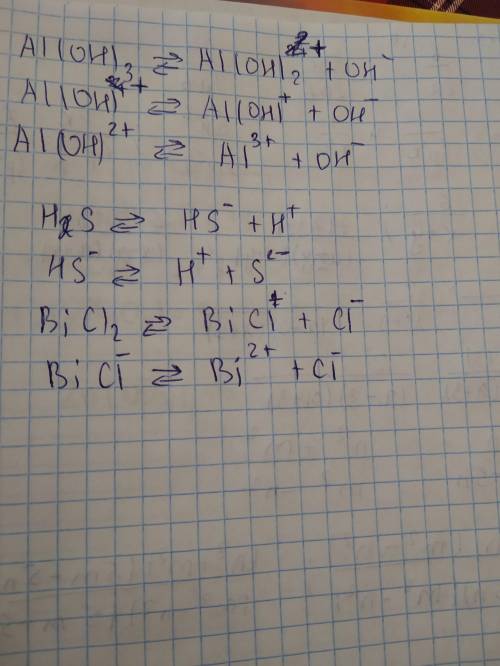 Al(OH)₃ ⇄ Al(OH)₂⁺ + OH⁻
Al(OH)₂⁺ ⇄ Al(OH⁺ + OH⁻
Al(OH)²⁺ ⇄ Al³⁺ + OH⁻
H₂S ⇄ HS⁻ + H⁺
HS⁻ ⇄ H⁺ + S²⁻
BiCl₂ ⇄ BiCl⁺ + Cl⁻
BiCl⁻ ⇄ Bi²⁺ + Cl⁻